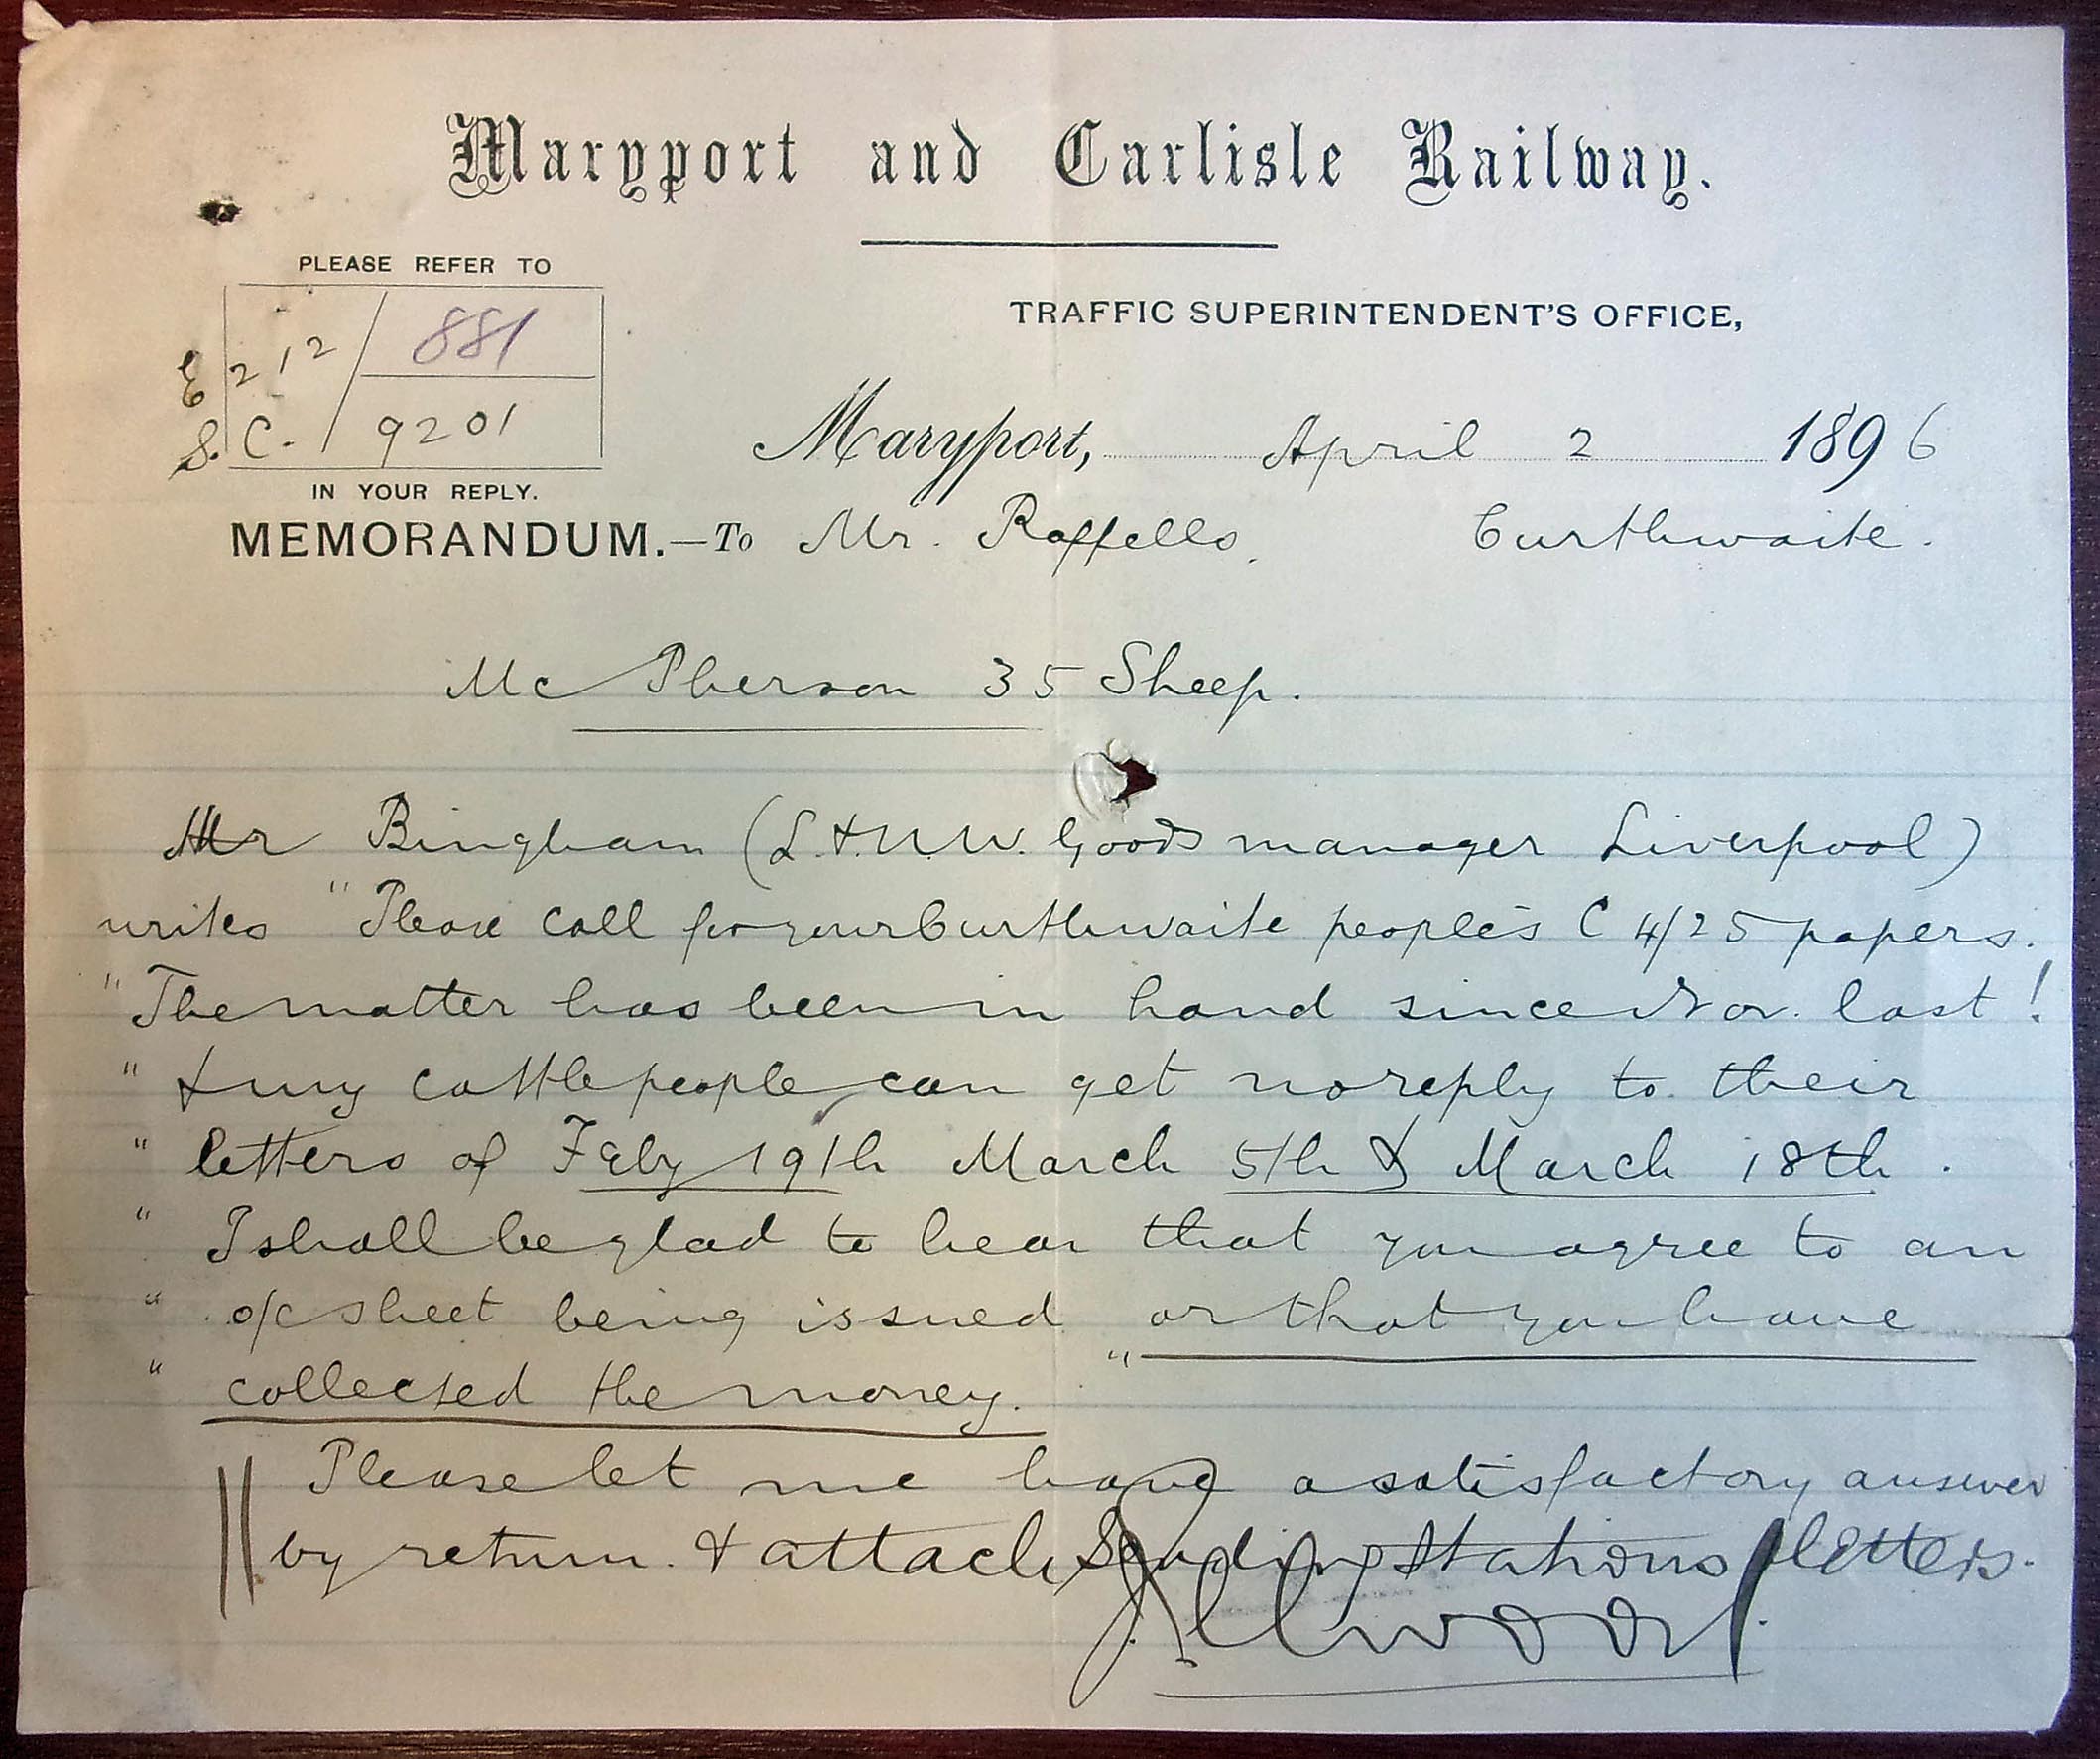 Maryport and Carlisle Railway.
PLEASE REFER TO
TRAFFIC SUPERINTENDENT'S OFFICE,
E 212 / 881
S. C. / 9201
IN YOUR REPLY.
Maryport, April 2 1896
MEMORANDUM.—To Mr. Raffells. Curthwaite.
McPherson 35 Sheep.
Mr Bingham (L.&N.W. Goods manager Liverpool)
writes "Please call for your Curthwaite people's C 4/25 papers.
" The matter has been in hand since Nov. last!
" & my cattle people can get no reply to their
" letters of Feby 19th March 5th & March 18th.
" I shall be glad to hear that you agree to an
" o/c sheet being issued or that you have
" collected the money. "
Please let me have a satisfactory answer
by return. & attach Sending Stations letters.
J. Ellwood